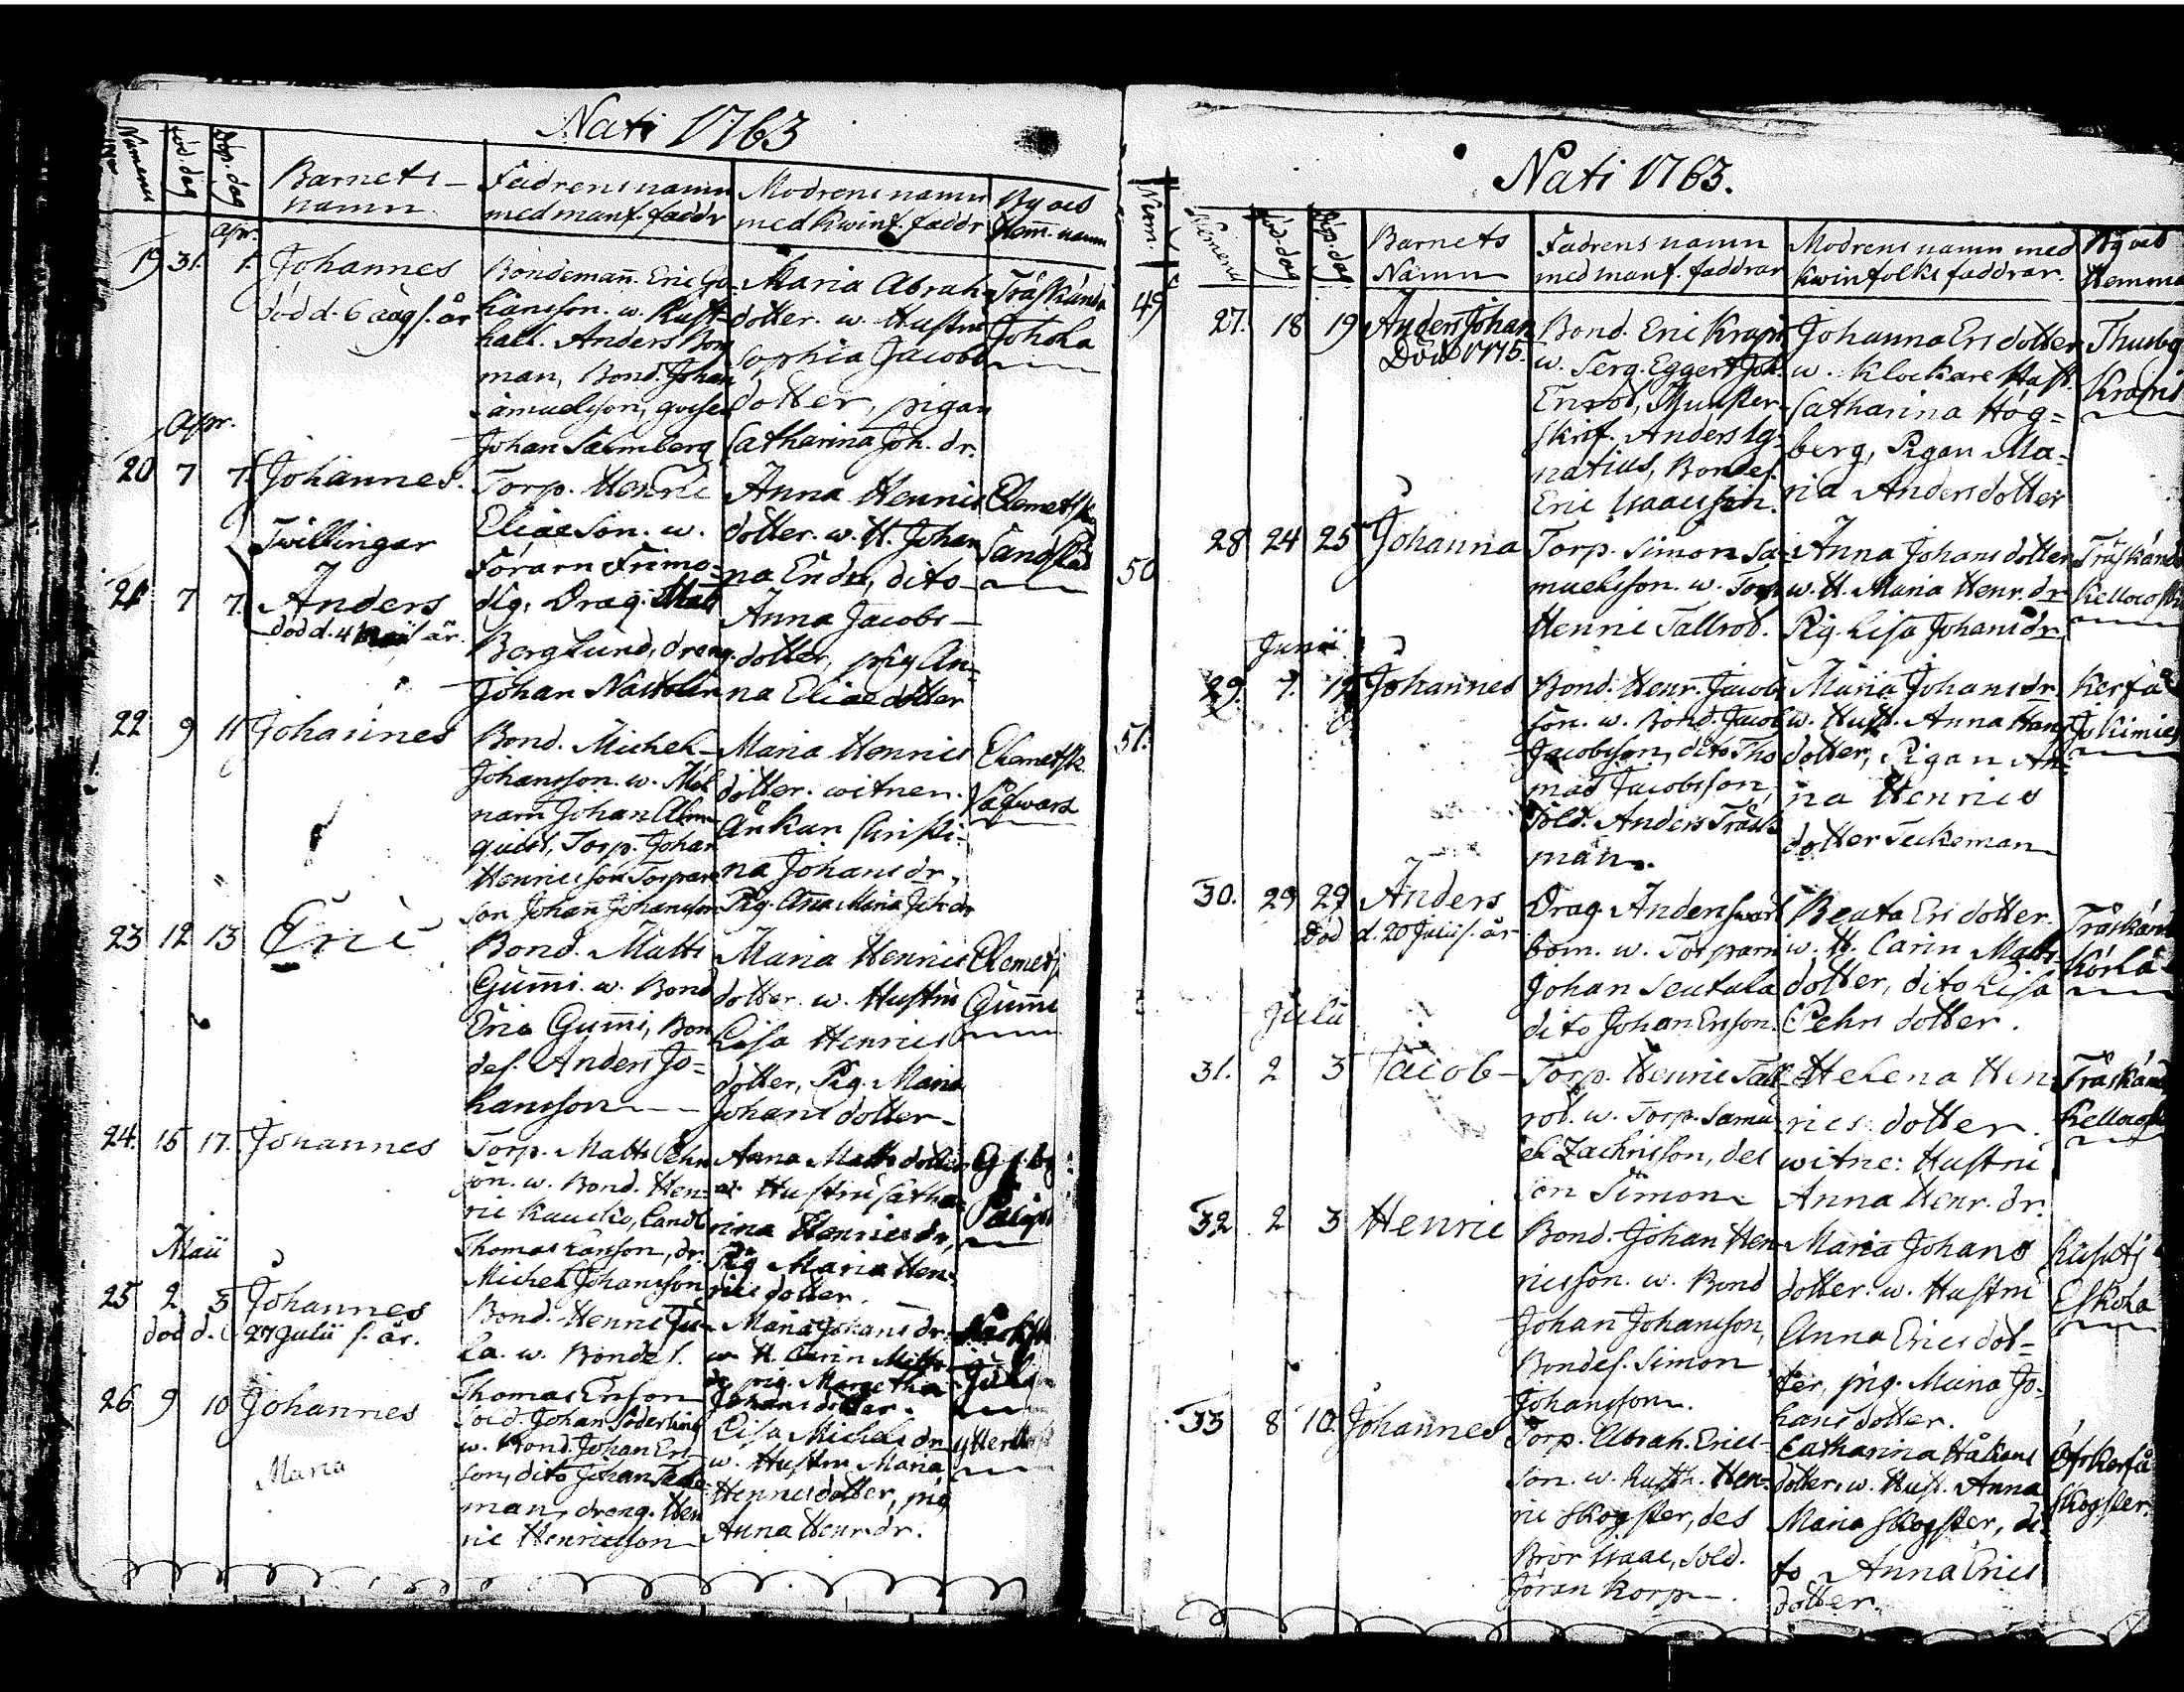 Nati 1763
Numerus
föd. dag
Döp. dag
Barnets namn
Fadrens namn med manf. faddr
Modrens namn med kwinf. faddr
By och Hem̄. namn
Apr.
19 31. 1. Johannes
död d. 6 aug s. år
Bondeman̄. Eric Jo-
hansson. w. Rust-
håll. Anders Bom
man, Bond. Johan
Samuelsson, gossen
Johan Salmberg
Maria Abrah.
dotter. w. Hustru
Sophia Jacobs
dotter, pigan
Catharina Joh. dr.
Träskända
Johola
Apr.
20 7 7. Johannes.
Twillingar
21 7 7. Anders
död d. 4 Maii s. år.
Torp. Henric
Eliæ Son. w.
Förarn Frimo-
dig, Drag. Matt
Berglund, dreng.
Johan
Anna Henrics
dotter. w. H. Johan
na Endr, dito
Anna Jacobs-
dotter, pig An-
na Eliæ dotter
Clemetsk.
Sandbäck
22 9 11 Johannes
Bond. Michel
Johansson. w. Möl
narn Johan Alm-
quist, Torp. Johan
Henricsson Torpare
son Johan̄ Johansson
Maria Henrics
dotter. witnen.
Änkan Christi-
na Johans dr,
Pig. An̄a Maria Joh. dr
Clemetsk.
23 12 13 Eric
Bond. Matts
Gum̄i. w. Bond
Eric Gum̄i, Bon
des. Anders Jo-
hansson
Maria Henrics
dotter. w. Hustru
Lisa Henrics
dotter, Pig. Maria
Johans dotter
Clemetsk.
Gum̄i
24. 15 17. Johannes
Torp. Matts Pehr
son. w. Bond. Hen-
ric Kaucko,
Thomas Larsson, dr.
Michel Johansson
Anna Matts dotter
w. Hustru Catha-
rina Henrics dr,
Pig Maria Hen-
rics dotter.
Maii
25 2 3 Johannes
död d. 27 Julii s. år.
Bond. Henric Ju-
la. w. Bondes.
Thomas Ersson
Maria Johans dr.
w. H. Carin Matts
dr, pig. Margetha
Johans dotter.
Jula
26 9 10 Johannes
Maria
Sold. Johan Söderling
w. Bond. Johan Ers
son, dito Johan
man, dreng. Hen
ric Henricsson
Lisa Michels dr
w. Hustru Maria
Henrics dotter, pig
Anna Henr. dr.
Nati 1763.
Num.
Numerus
föd. dag
Döp. dag
Barnets Namn
Fadrens namn med manf. faddrar
Modrens namn med kwinfolks faddrar.
By och Hemma
49
27. 18 19 Anders Johan
Död 1775.
Bond. Eric Krapi
w. Serg. Eggert Joh.
Enrot, Munster-
skrif. Anders Ig-
natius, Bondes.
Eric Isacsson.
Johanna Ers dotter
w. Klockare Hust.
Catharina Hög-
berg, Pigan Ma-
ria Anders dotter
Thusby
Krapi
28 24 25 Johanna
50
Torp. Simon Sa-
muelsson. w. Torp
Henric Tallrot.
Anna Johans dotter
w. H. Maria Henr. dr
Pig. Lisa Johans dr
Träskända
Kellocoski
Junii
29. 7. 12 Johannes
51.
Bond. Henr. Jacob
son. w. Bond. Jacob
Jacobsson, dito Tho
mas Jacobsson,
Sold. Anders Träsk
man.
Maria Johans dr
w. Hust. Anna Hans
dotter, Pigan An-
na Henrics
dotter Teckeman
Kerfå
Jokimies
30. 29 29 Anders
död d. 20 Julii s. år
Drag. Anders Swart
bom. w. Torparn
Johan Seutula
dito Johan Ersson.
Beata Ers dotter.
w. H. Carin Matts-
dotter, dito Lisa
Pehrs dotter.
Träskända
Julii
31. 2 3 Jacob
Torp. Henric Tall
rot. w. Torp. Samu
el Zachrisson, des
son Simon
Helena Hen-
rics dotter.
witne: Hustru
Anna Henr. dr.
Träskända
Kellocoski
32 2 3 Henric
Bond. Johan Hen-
ricsson. w. Bond
Johan Johansson,
Bondes. Simon
Johansson.
Maria Johans
dotter. w. Hustru
Anna Erics dot-
ter, pig. Maria Jo-
hans dotter.
Eskola
33 8 10. Johannes
Torp. Abrah. Erics-
son. w. Rusth. Hen-
ric Skogster, des
Bror Isaac, Sold.
Jöran Korp
Catharina Håkans
dotter. w. Hust. Anna
Maria Skogster, di-
to Anna Erics
dotter.
Skogster